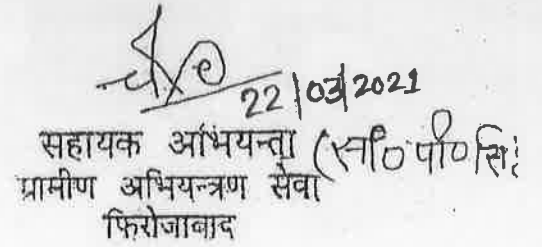 22/03/2021
सहायक अभियन्ता (सी० पी० सिं
ग्रामीण अभियन्त्रण सेवा
फिरोजाबाद